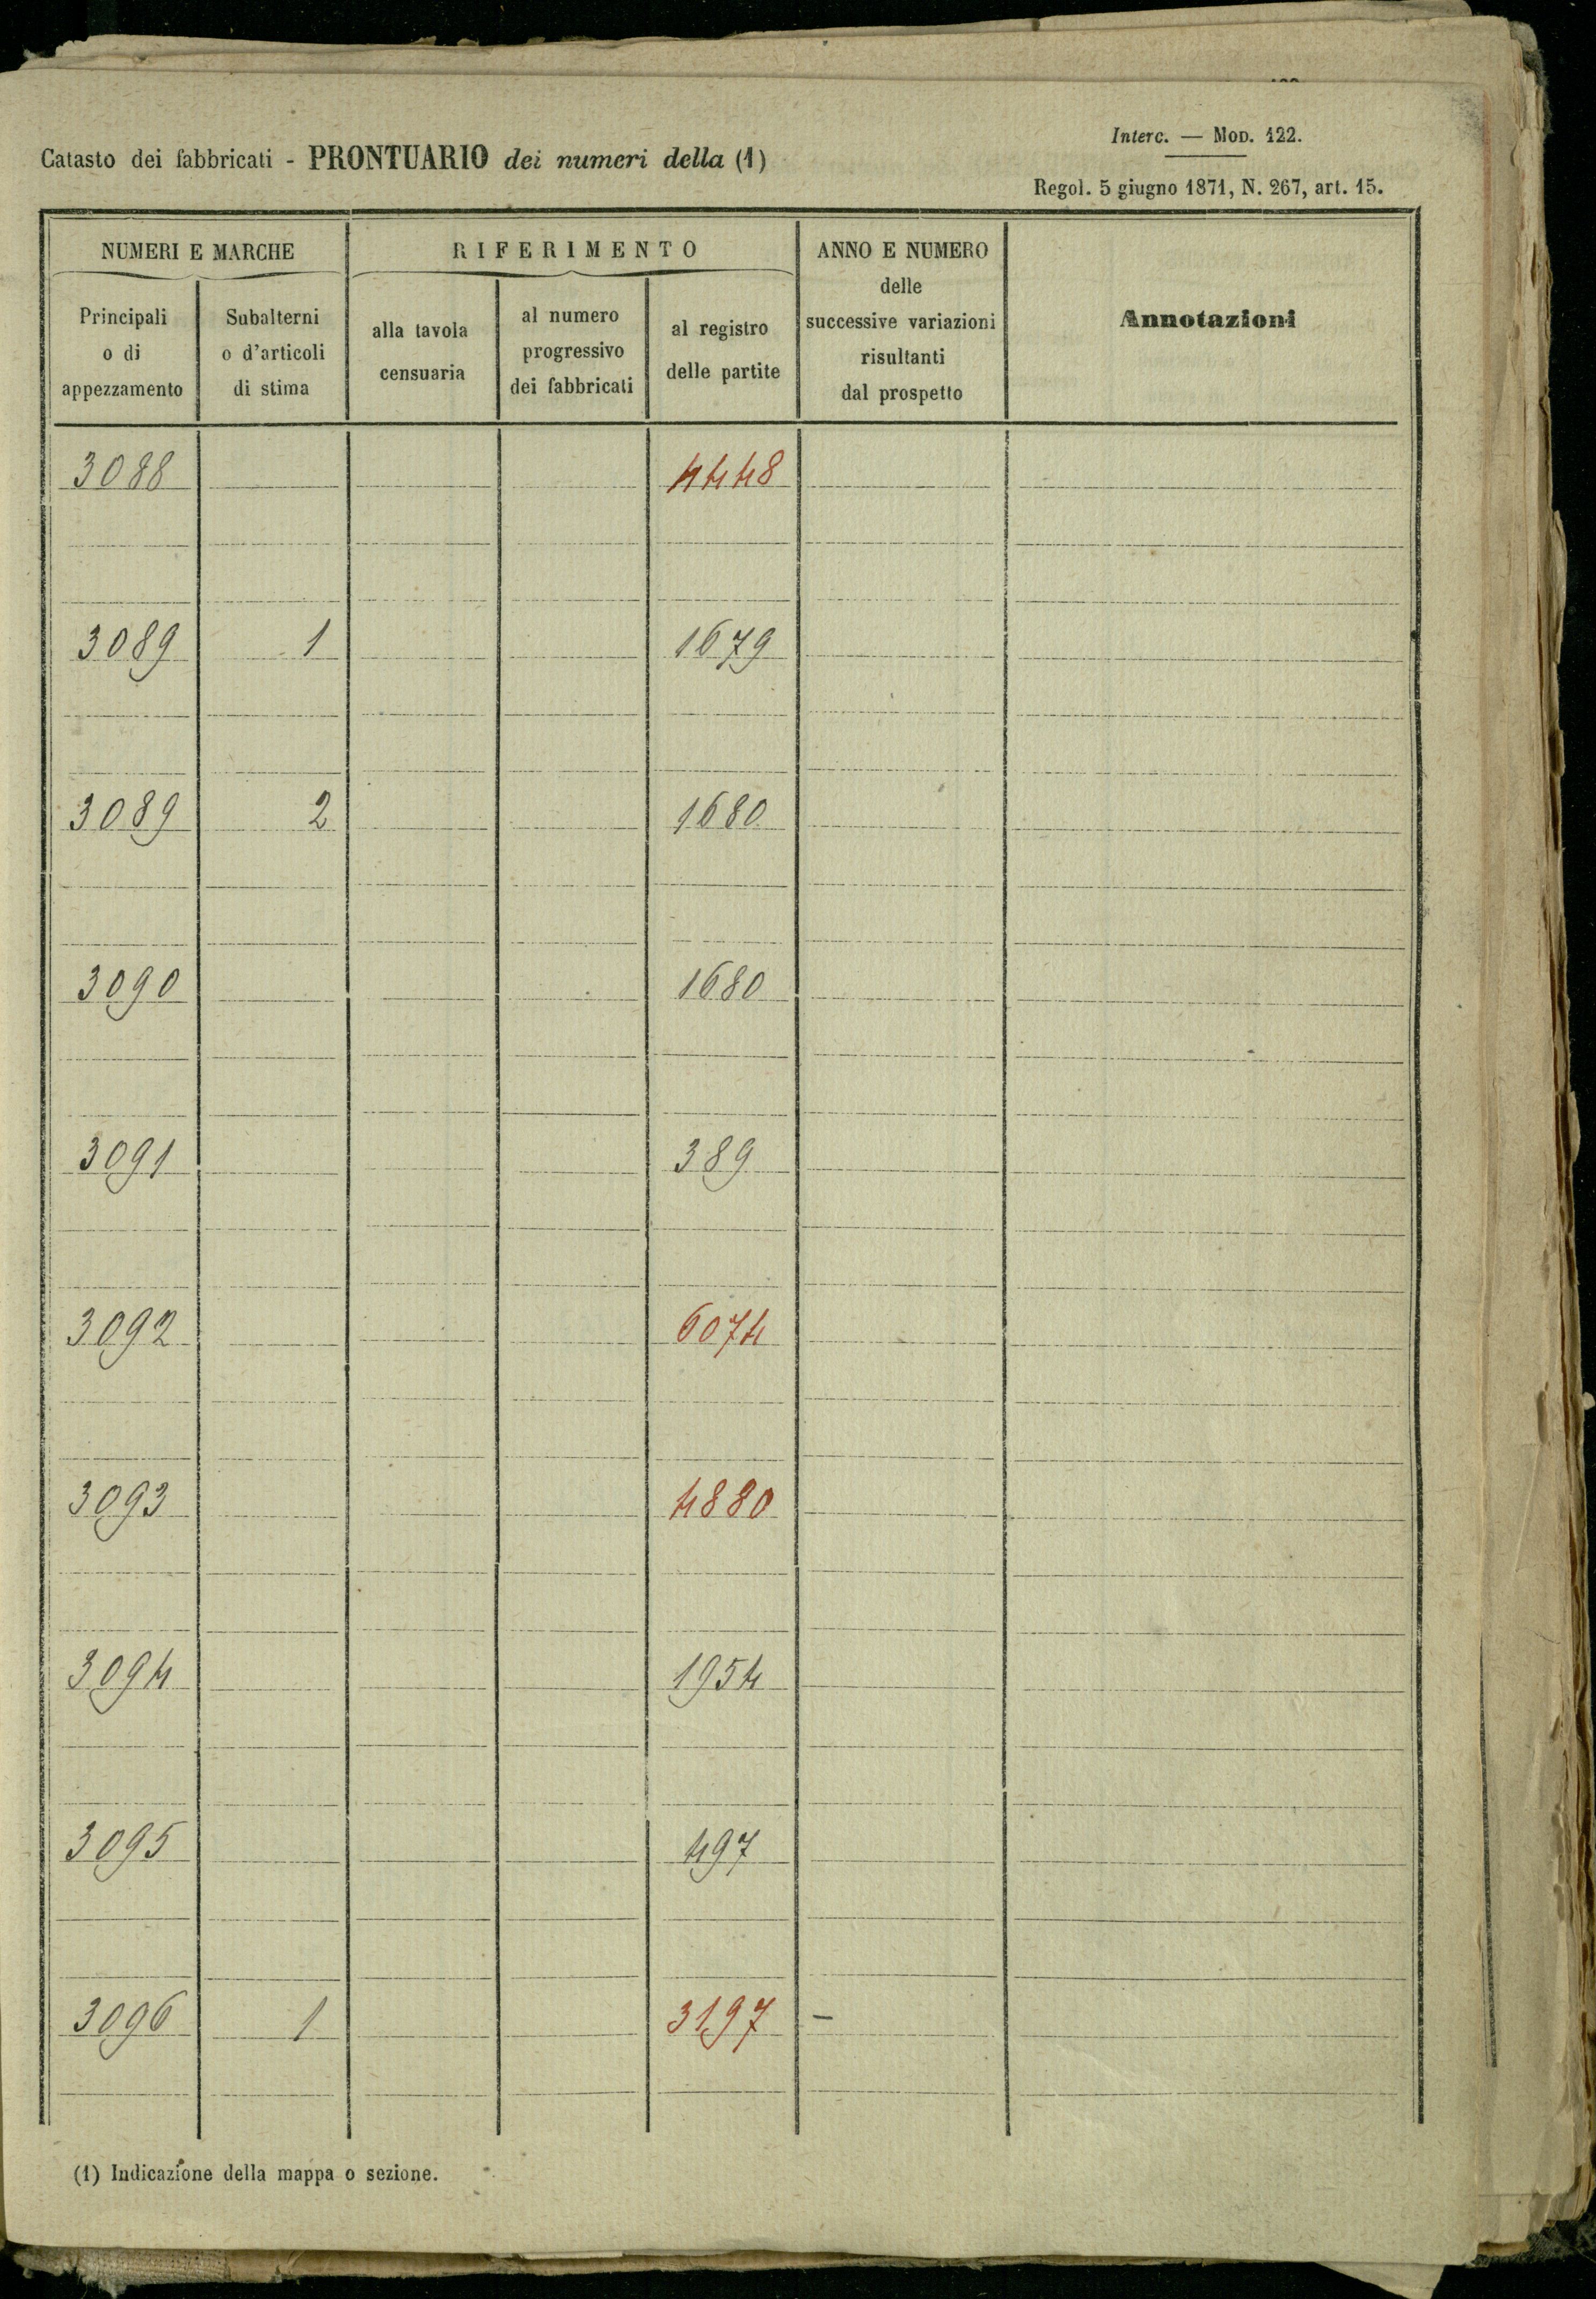 Interc. — Mod. 122.
Catasto dei fabbricati - PRONTUARIO dei numeri della (1)
Regol. 5 giugno 1871, N. 267, art. 15.
NUMERI E MARCHE
Principali o di appezzamento
Subalterni o d'articoli di stima
RIFERIMENTO
alla tavola censuaria
al numero progressivo dei fabbricati
al registro delle partite
ANNO E NUMERO delle successive variazioni risultanti dal prospetto
Annotazioni
3088 4448
3089 1 1679
3089 2 1680
3090 1680
3091 389
3092 6074
3093 4880
3094 1954
3095 497
3096 1 3197 —
(1) Indicazione della mappa o sezione.